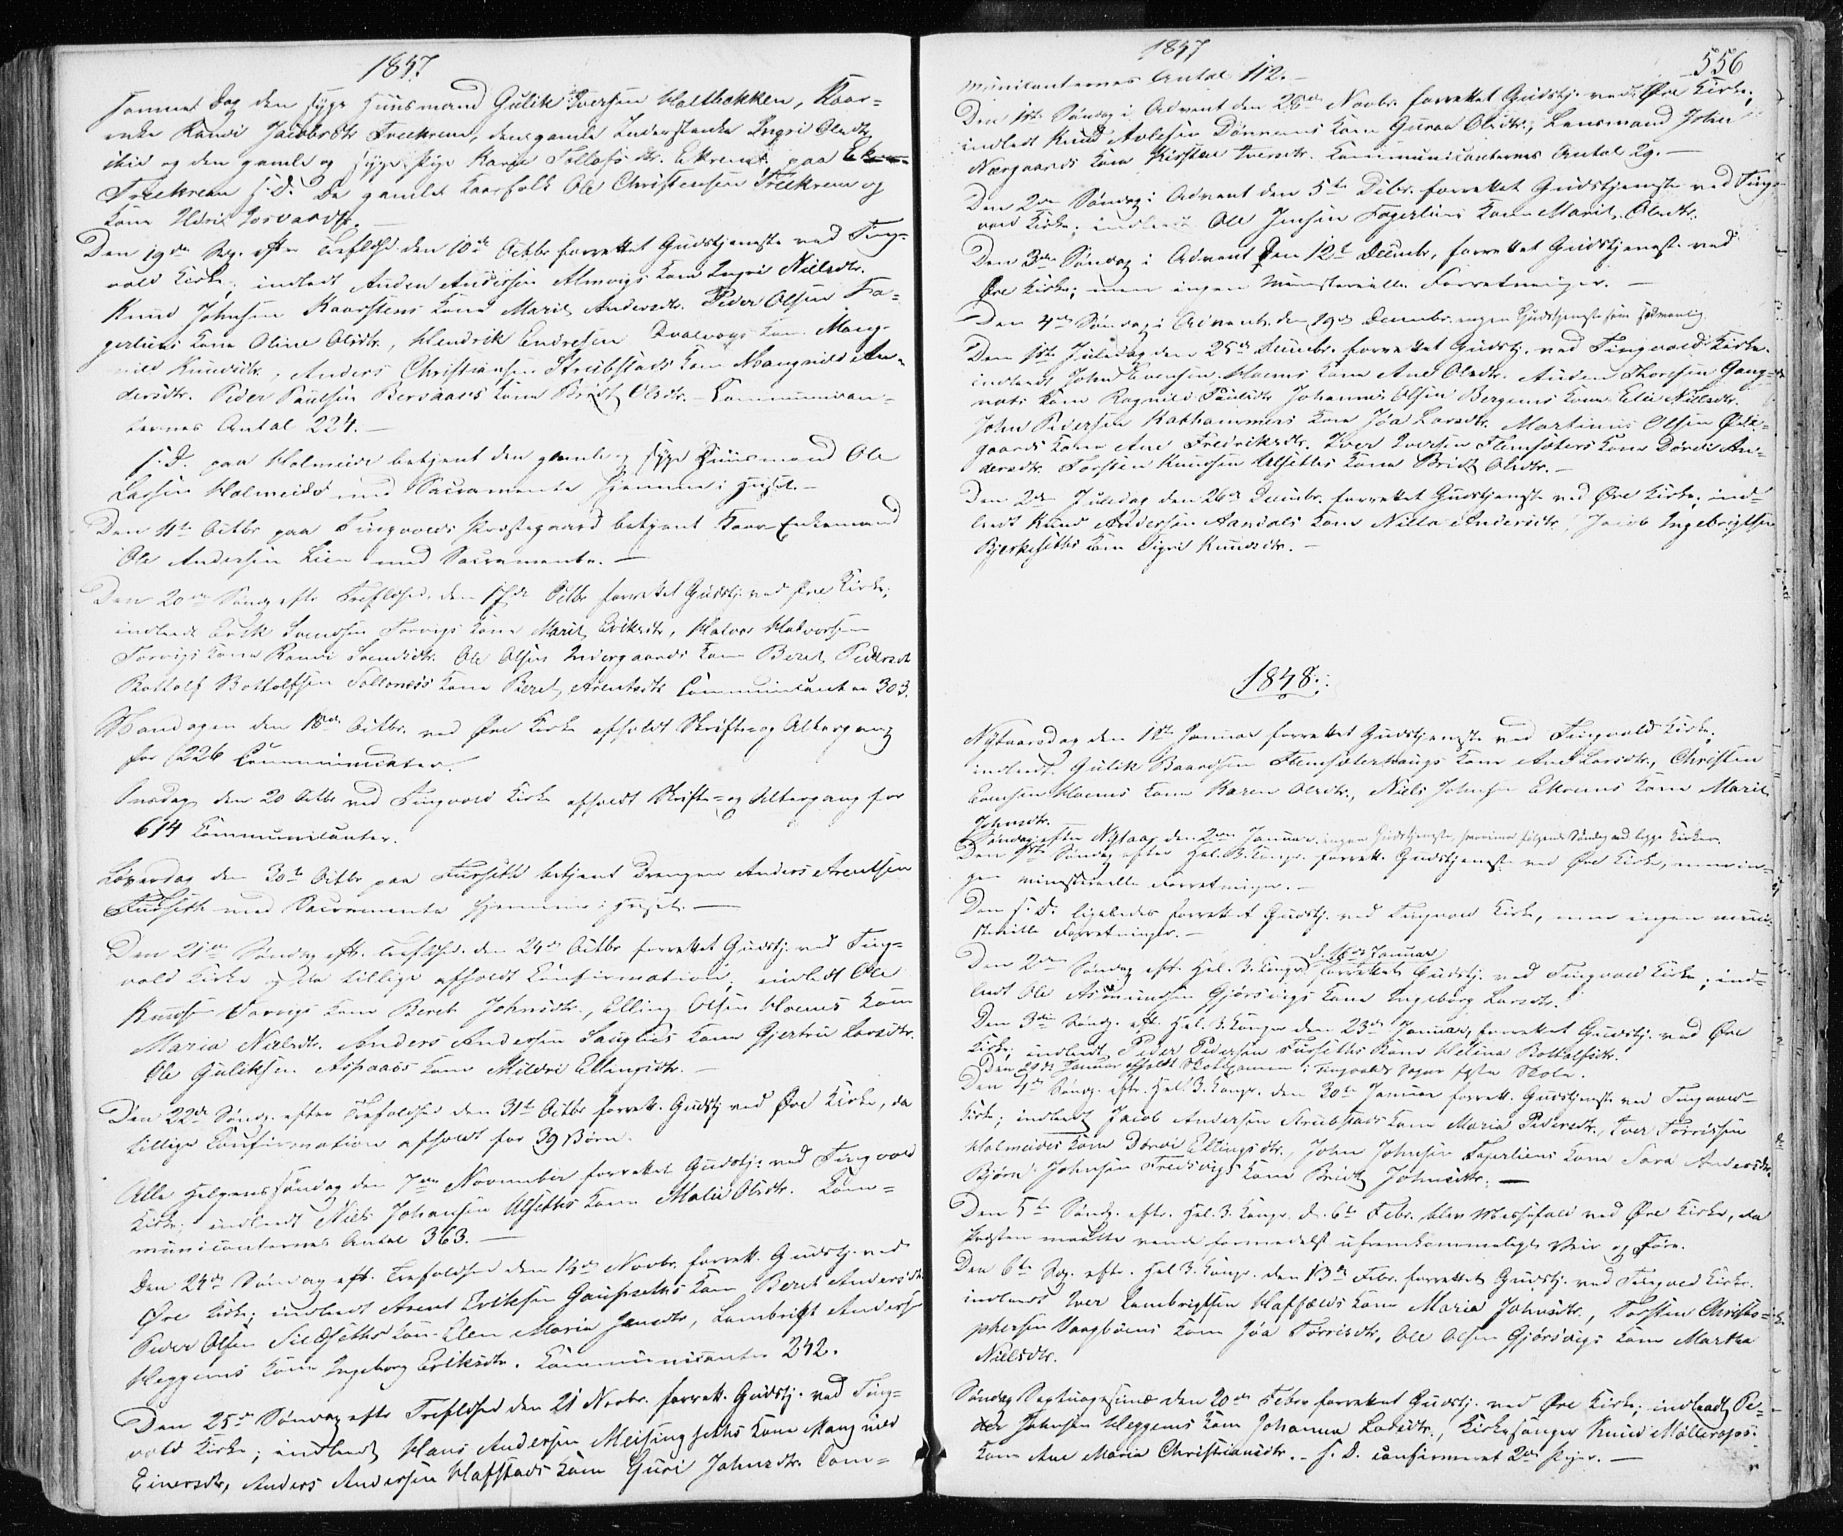 1847.
samme Dag den syge Huusmand Gulik Iversen Holtbakken, Kaar-
enke Randi Jacobsdtr Treekrem, den gamle Inderstenke Ingri Olsdtr
og den gamle og syge Pige Karen Tollefsdtr. Ekrem paa
Treekrem s: D. De gamle Kaarfolk Ole Christensen Treekrem og
Kone Sivardsdtr. —
Den 19de Søg. efter Trefoldhd den 10de Octbr forrettet Gudstjeneste ved Ting-
vold Kirke; indledt Anders Andersen Almvigs Kone Ingri Nielsdtr.
Knud Johnsen Kaarstens Kone Marit Andersdtr. Peder Olsen Fa-
gerliens Kone Oline Olsdtr, Hendrik Endresen Kone Mang-
nild Knudsdtr, Anders Christiansen Strubstads Kone Mangnild An-
dersdtr. Peder Paulsen Bersaaes Kone Brit Olsdtr. Communican-
ternes Antal 224. —
s: D. paa Holmeide betjent den gamle og syge Huusmand Ole
Larsen Holmeide med Sacramente hjemme i Huset. —
Den 11te Octbr paa Tingvolds Præstegaard betjent Kaar Enkemand
Ole Andersen Lien med Sacramente. —
Den 20de Søndg efter Trefoldhed, den 17de Octbr forrettet Gudstj. ved Øre Kirke;
indledt Erik Svendsen Torvigs Kone Marit Eriksdtr, Halvor Halvorsen
Torvigs Kone Randi Svendsdtr. Ole Olsen Indergaards Kone Beret Pedersdt
Bottolf Bottolfsen Kone Beret Arentsdtr Communicanter 303.
Mandagen den 18de Octbr. ved Øre Kirke afholdt Skrifte- og Altergang
for 226 Communicanter.
Onsdag den 20 Octbr ved Tingvold Kirke afholdt Skrifte- og Altergang for
614 Communicanter.
Løverdag den 30te Octbr paa Furseth betjent Drengen Anders Arentsen
Furseth med Sacramente hjemme i Huset —
Den 21de Søndag eft. Trefoldhd. den 24de Octbr forrettet Gudstj. ved Ting-
vold Kirke og da tillige afholdt Confirmation; indledt Ole
Knuds Torvigs Kone Beret Johnsdtr., Elling Olsen Hoems Kone
Maria Nielsdtr. Anders Andersen Sauglies Kone Gjertrud Larsdtr.
Ole Guliksen Aspaaes Kone Mildri Ellingsdtr. —
Den 22de Søndg. efter Trefoldhd den 31te Octbr forrett. Gudstj ved Øre Kirke, da
tillige Confirmation afholdt for 39 Børn.
Alle Helgens Søndag den 7de November forrettet Gudstj: ved Tingvold
Kirke; indledt Niels Johansen Ulseths Kone Malii Olsdtr. Com-
municanternes Antal 363. —
Den 24de Søndag eft. Trefoldhed den 14de Novbr. forrett. Gudstj. ved
Øre Kirke; indledt Arent Eriksen Gaupseths Kone Beret Andersdtr
Peder Olsen Sildseths Kone Elen Maria Jensdtr, Lambrigt Anders
Heggems Kone Ingeborg Eriksdtr. Communicanter 242.
Den 25de Søndag efter Trefoldhed den 21 Novbr. forrett. Gudstj. ved Ting-
vold Kirke; indledt Hans Andersen Meisingseths Kone Mangnild
Einersdtr, Anders Andersen Hafstads Kone Guri Johnsdtr. Com-
1847
556
municanternes Antal 112. —
Den 1ste Søndag i Advent den 28de Novbr. forrettet Gudstj. ved Øre Kirke;
indledt Knud Avlesen Dønnems Kone Guraa Olsdtr., Lensmand John
Norgaards Kone Kirsten Iversdtr. Communicanternes Antal 29. —
Den 2den Søndag i Advent den 5te Decbr. forrettet Gudstjeneste ved Ting-
vold Kirke; indledt Ole Jensen Fagerliens Kone Marit Olsdtr.
Den 3die Søndag i Advent den 12te Decembr, forrettet Gudstjeneste ved
Øre Kirke; men ingen ministerielle Forretninger. —
Den 4de Søndag i Advent den 19de Decembr. ingen Gudstjeneste som sædvanlig.
Den 1ste Juledag den 25de Decembr. forrettet Gudstj. ved Tingvold Kirke.
indledt John Evensen Hoems Kone Ane Olsdtr. Anders Thoresen Gang-
nats Kone Ragnild Paulsdtr Johannes Olsen Bergems Kone Elie Nielsdtr.
John Pedersen Kathammers Kone Joa Larsdtr. Martinus Olsen Øde-
gaards Kone Ane Fredriksdtr. Iver Iversen Flemsæters Kone Dordi An-
dersdtr. Torsten Knudsen Ulseths Kone Brit Olsdtr. —
Den 2den Juledag den 26de Decembr. forrettet Gudstjeneste ved Øre Kirke, ind-
ledt Knud Andersen Aandals Kone Nilla Andersdtr, Jacob Ingebrigtsen
Bjerkeseths Kone Sigri Knudsdtr. —
1848.
Nytaarsdag den 1ste Januar forrettet Gudstjeneste ved Tingvold Kirke,
indledt Gulik Baardsen Flemsæterhaugs Kone Ane Larsdtr., Christen
Evensen Hoems Kone Karen Olsdtr., Niels Johnsen Ekrems Kone Marit
Johnsdtr.
Søndag efter Nytaar den 2den Januar ingen Gudstjeneste, følgende Søndag ved begge Kirker
Den 1ste Søndag efter Hel. 3 Konger forrett. Gudstjeneste ved Øre Kirke, men in-
gen ministerielle Forretninger. —
Den s. D. ligeledes forrettet Gudstj. ved Tingvold Kirke, men ingen mini-
sterielle Forretninger. —
d. 16de Januar
Den 2den Søndag eft. Hel. 3. Konger forrettet Gudstj. ved Tingvold Kirke; ind-
ledt Ole Asmundsen Gjørsvigs Kone Ingeborg Larsdtr.
Den 3die Søndg. eft. Hel. 3. Konger den 23de Januar, forrettet Gudstj. ved Øre
Kirke, indledt Peder Pedersen Furseths Kone Helena Bottolfsdtr.
Den 29de Januar afholdt Skolexamen i Tingvolds Sogns faste Skole.
Den 4de Søndg. eft. Hel. 3. Kongr. den 30te Januar forrett. Gudstjeneste ved Tingvold
Kirke; indledt Jacob Andersen Strubstads Kone Maria Pedersdtr, Iver Torrisen
Holmeides Kone Dordi Ellingsdtr., John Johnsen Fagerliens Kone Sara Andersdtr.
Bjørn Johnsen Tredsvigs Kone Brit Johnsdtr. —
Den 5te Søndg. eft. Hel. 3. Kongr. d. 6te Febr. blev Messefald ved Øre Kirke, da
Præsten maatte vende formedelst ufremkommeligt Veir og Føre.
Den 6te Søg. eft. Hel. 3. Kongr. den 13de Febr. forrettet Gudstj. ved Tingvold Kirke.
indledt Iver Lambrigtsen Hafsælds Kone Maria Johnsdtr., Torsten Christo-
phersen Vaagbøens Kone Joa Torrisdtr, Ole Olsen Gjørsvigs Kone Martha
Nielsdtr.
Søndag Septuagesimæ den 20de Febr forrettet Gudstj. ved Øre Kirke; indledt Pe-
der Johnsen Heggems Kone Johanna Larsdtr, Kirkesanger Knud Møllerops
Kone Ane Maria Christiansdtr. — s. D. confirmeret 2de Piger. —